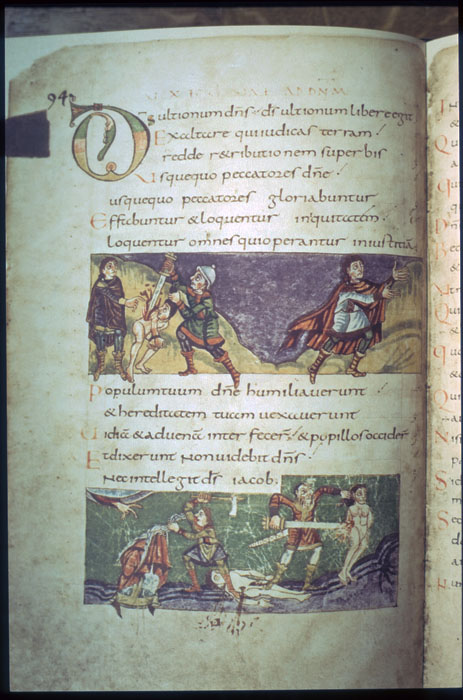 94
Dsultionum dns ds ultionum libere egit
Exaltare qui iudicas terram
redde retributionem superbis
Usquequo peccatores dne
usquequo peccatores gloriabuntur
Effabuntur & loquentur iniquitatem
loquentur omnes qui operantur iniustitia
Populum tuum dne humiliaverunt
& hereditatem tuam vexaverunt
Uiduā & advenā interfecer & pupillos occider
Et dixerunt Non videbit dns
Nec intelleget ds iacob